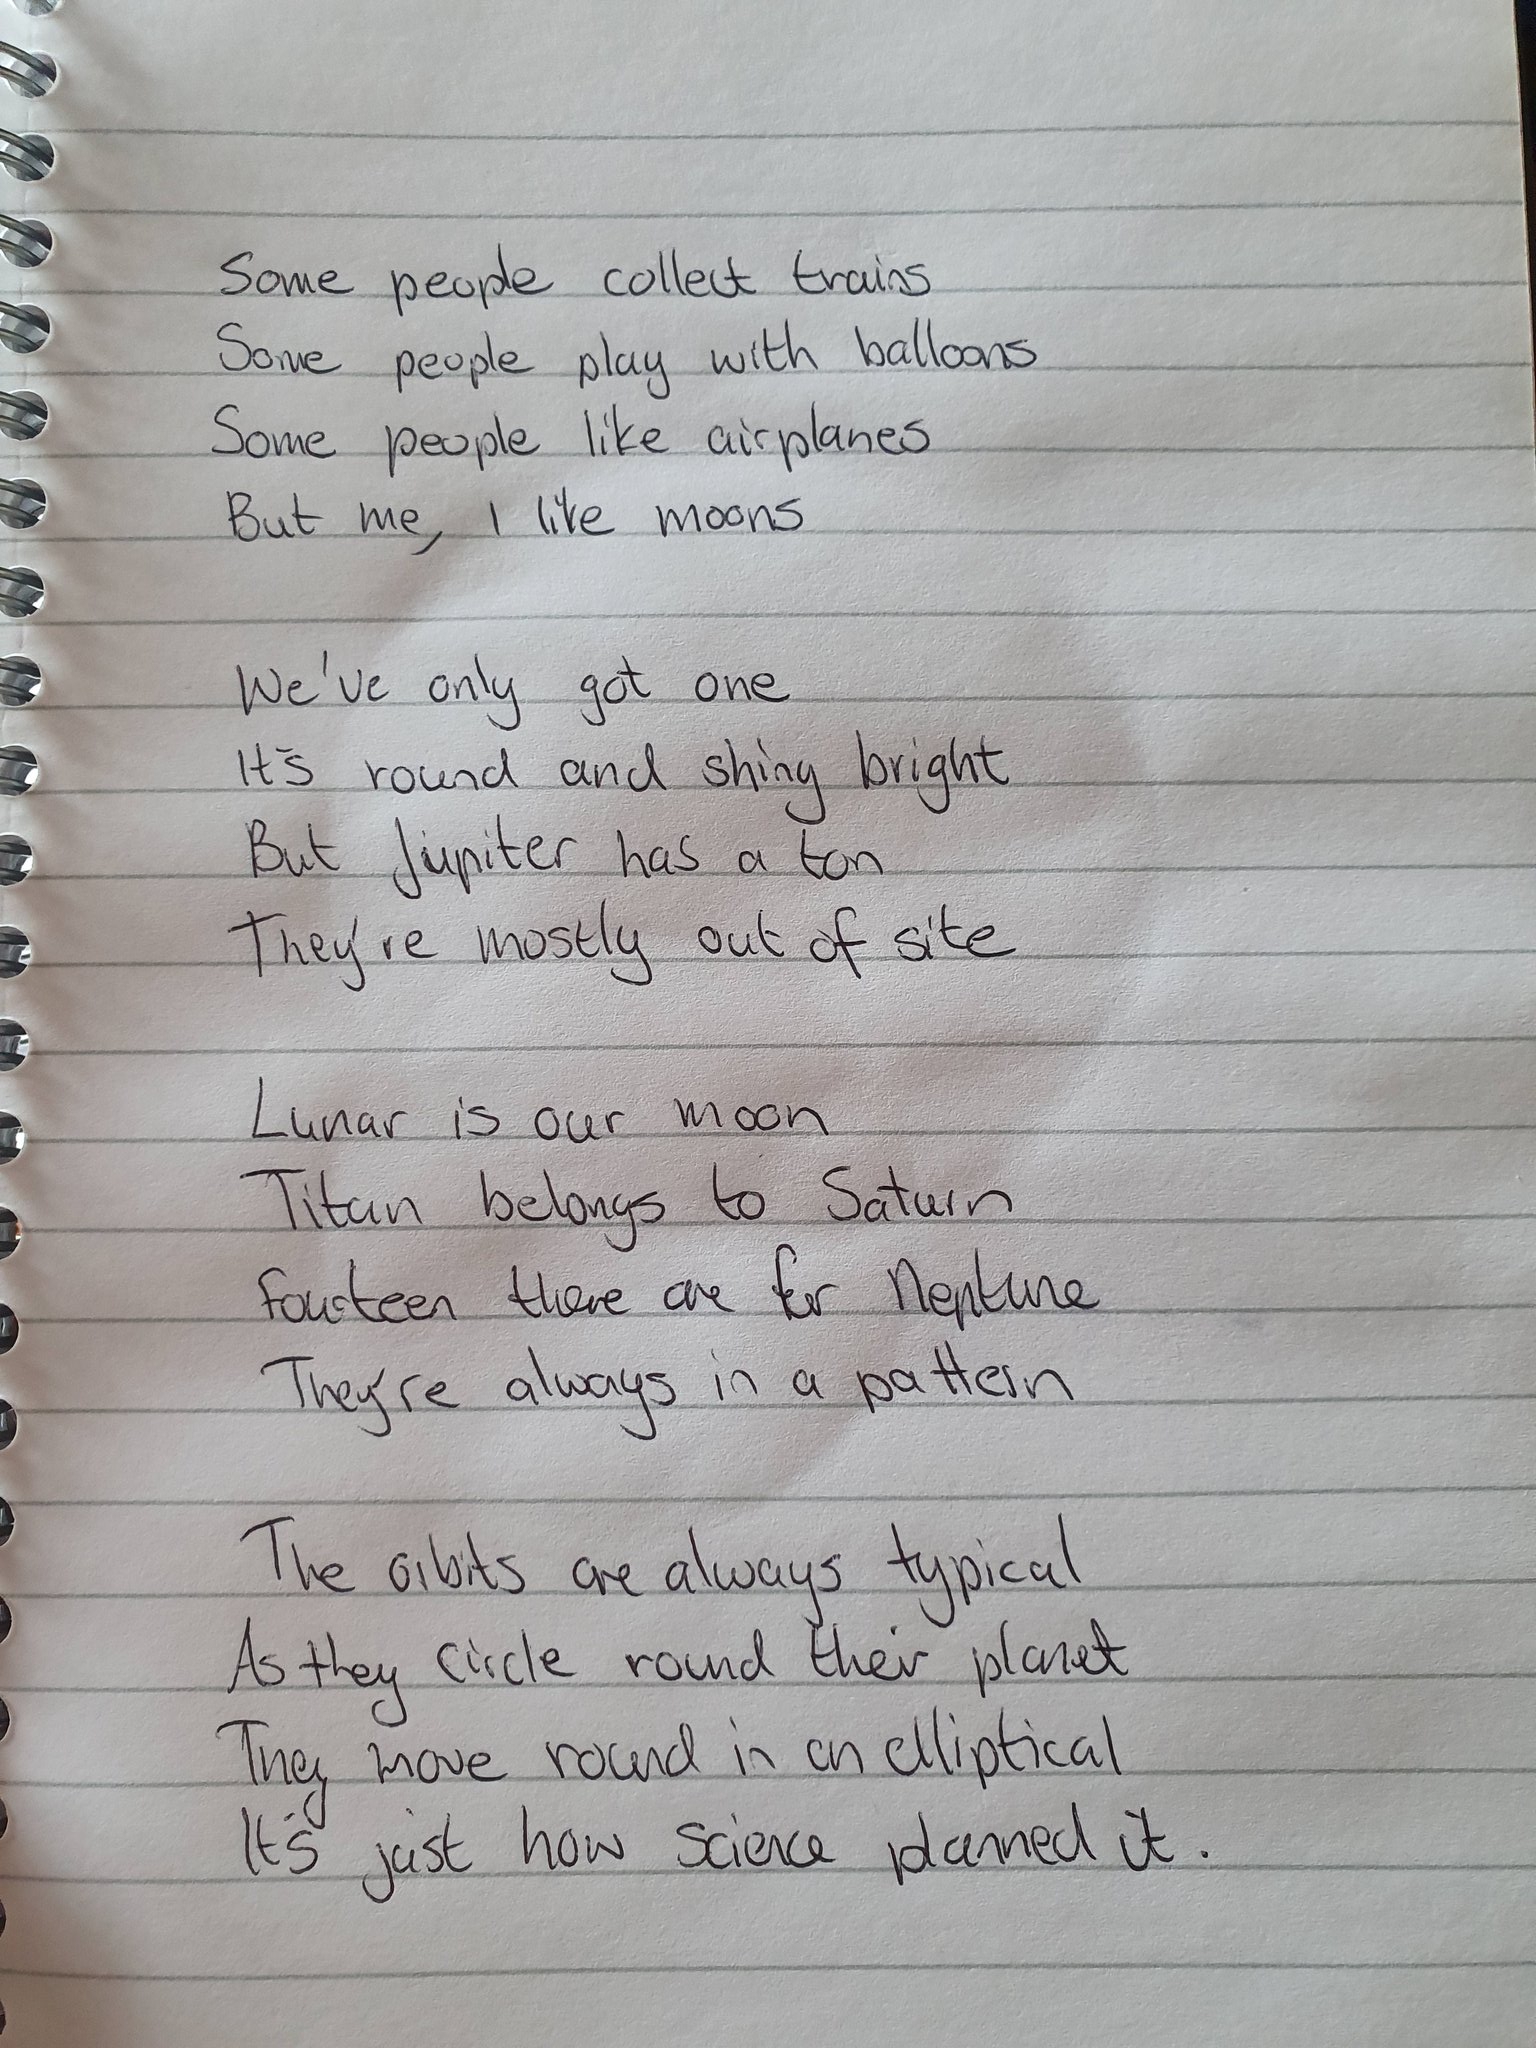 Some people collect trains
Some people play with balloons
Some people like airplanes
But me, I like moons
We've only got one
It's round and shiny bright
But Jupiter has a ton
They're mostly out of site
Lunar is our moon
Titan belongs to Saturn
Fourteen there are for Neptune
They're always in a pattern
The orbits are always typical
As they circle round their planet
They move round in an elliptical
It's just how science planned it.